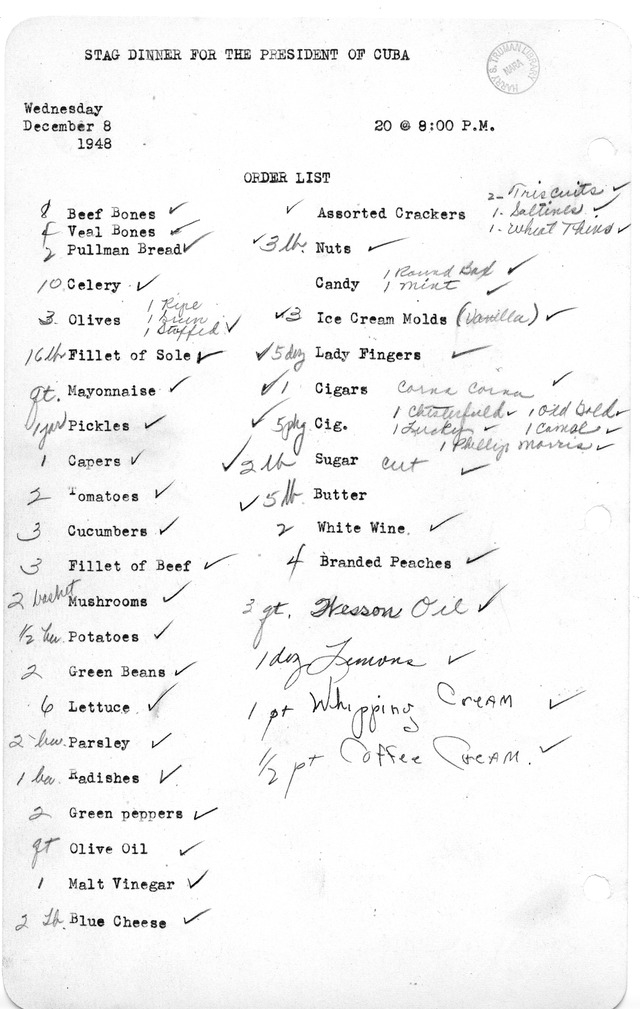 STAG DINNER FOR THE PRESIDENT OF CUBA
HARRY S. TRUMAN LIBRARY
NARA
Wednesday
December 8
1948
20 @ 8:00 P.M.
ORDER LIST
8 Beef Bones ✓
4 Veal Bones ✓
2 Pullman Bread ✓
10 Celery ✓
3 Olives 1 Ripe
1 Green
1 Stuffed ✓
16 lb Fillet of Sole ✓
qt. Mayonnaise ✓
1 jar Pickles ✓
1 Capers ✓
2 Tomatoes ✓
3 Cucumbers ✓
3 Fillet of Beef ✓
2 basket Mushrooms ✓
1/2 bu. Potatoes ✓
2 Green Beans ✓
6 Lettuce ✓
2 bu. Parsley ✓
1 bu. Radishes ✓
2 Green peppers ✓
qt Olive Oil ✓
1 Malt Vinegar ✓
2 Lb. Blue Cheese ✓
✓ Assorted Crackers 2- Triscuits ✓
1- Saltines ✓
1- Wheat Thins ✓
✓ 3 lb. Nuts ✓
Candy 1 Round Box ✓
1 mint ✓
✓ 3 Ice Cream Molds (Vanilla) ✓
✓ 5 doz Lady Fingers ✓
✓ 1 Cigars Corna Corna ✓
✓ 5 pkg Cig. 1 Chesterfield ✓ 1 Old Gold ✓
1 Lucky ✓ 1 Camel ✓
1 Phillip Morris ✓
✓ 2 lb Sugar cut ✓
✓ 5 lb. Butter
2 White Wine. ✓
4 Branded Peaches ✓
3 qt. Wesson Oil ✓
1 doz Lemons ✓
1 pt Whipping Cream ✓
1/2 pt Coffee Cream. ✓